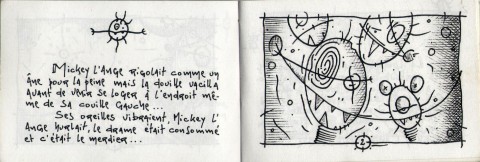 Mickey l'Ange rigolait comme un
âne pour la peine mais la douille vacilla
avant de venir se loger à l'endroit mê-
me de sa couille gauche...
Ses oreilles vibraient, Mickey l'
Ange hurlait, le drame était consommé
et c'était le merdier...
2